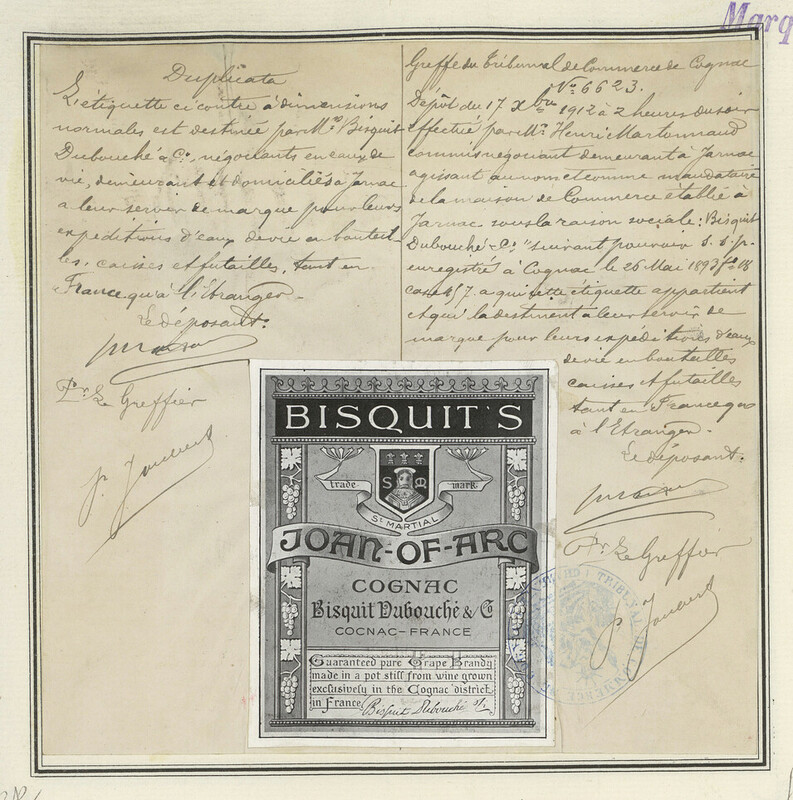 Marq
Duplicata
L'étiquette ci contre à dimensions
normales est destinée par Mrs Bisquit
Dubouché & Co, négociants en eaux de
vie, demeurant et domiciliés à Jarnac
a leur servir de marque pour leurs
expéditions d'eaux de vie en bouteil
les, caisses et futailles, tant en
France qu'à l'Etranger.
Le déposant.
Pr Le Greffier
Greffe du Tribunal de Commerce de Cognac
No 6623.
Dépôt du 17 Xbre 1912 à 2 heures du soir
effectué par Mr Henri Martonnaud
commis négociant demeurant à Jarnac
agissant au nom et comme mandataire
de la maison de Commerce établie à
Jarnac sous la raison sociale: Bisquit
Dubouché & Co "suivant pouvoir s. s. p.
enregistré à Cognac le 26 Mai 1893 fo
case a qui cette étiquette appartient
et qui la destinent à leur servir de
marque pour leurs expéditions d'eaux
de vie en bouteilles
caisses et futailles
tant en France que
à l'Etranger.
Le déposant.
Pr Le Greffier
BISQUIT'S
S M
trade mark
St MARTIAL
JOAN-OF-ARC
COGNAC
Bisquit Dubouché & Co
COGNAC-FRANCE
Guaranteed pure Grape Brandy
made in a pot still from wine grown
exclusively in the Cognac district
in France Bisquit Dubouché & Co